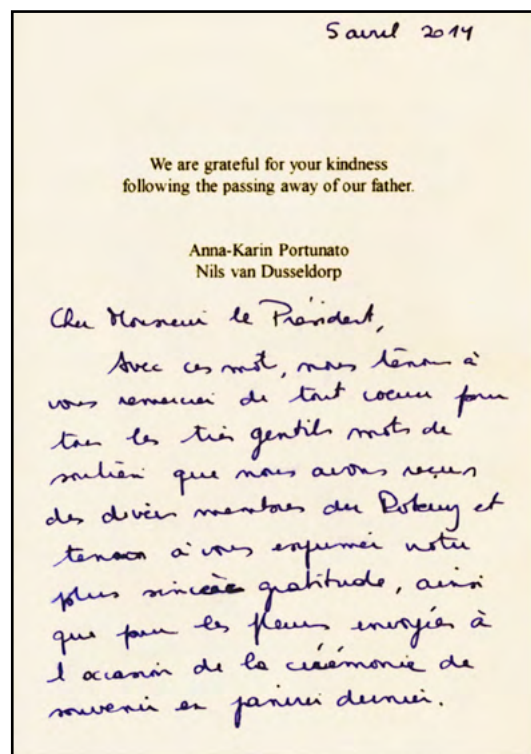 5 avril 2014
We are grateful for your kindness
following the passing away of our father.
Anna-Karin Portunato
Nils van Dusseldorp
Cher Monsieur le Président,
Avec ces mot, nous tenons à
vous remercier de tout coeur pour
tous les très gentils mots de
soutien que nous avons reçus
des divers membres du Rotary et
tenons à vous exprimer notre
plus sincère gratitude, ainsi
que pour les fleurs envoyées à
l'occasion de la cérémonie de
souvenir en janvier dernier.